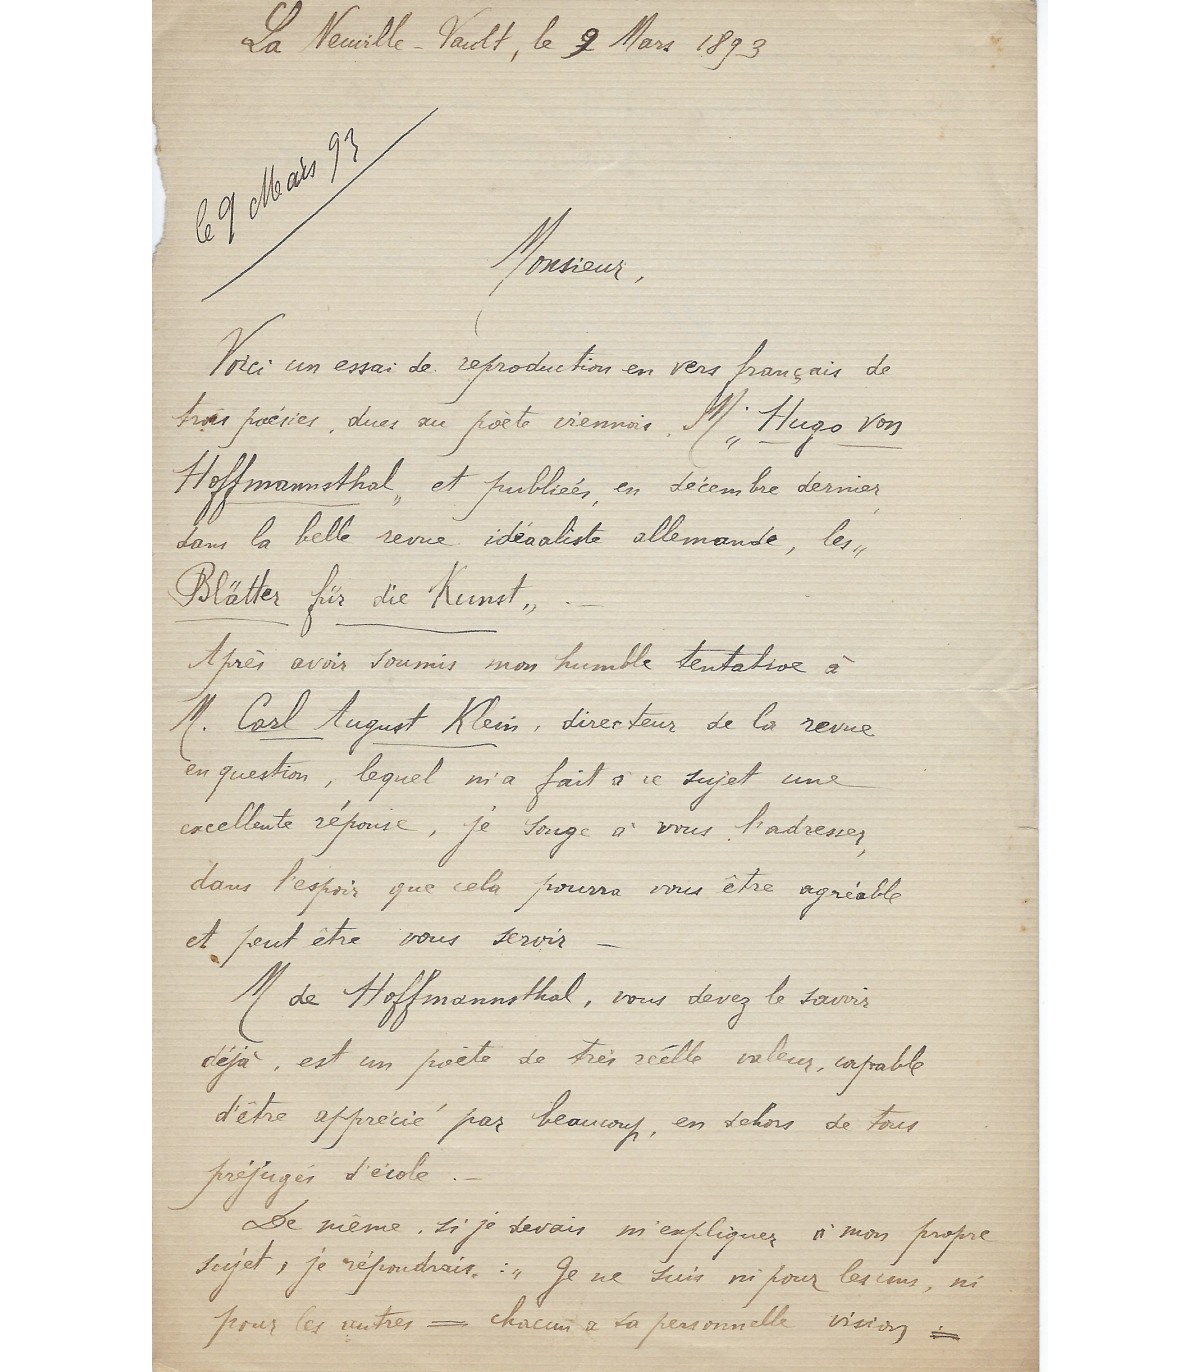 La Neuville-Vault, le 9 Mars 1893
le 9 Mars 93
Monsieur,
Voici un essai de reproduction en vers français de
trois poésies, dues au poète viennois, M. „ Hugo von
Hoffmannsthal „ et publieés, en décembre dernier,
dans la belle revue idéaliste allemande, les „
Blätter für die Kunst „. —
Après avoir soumis mon humble tentative à
M. Carl August Klein, directeur de la revue
en question, lequel m'a fait à ce sujet une
excellente réponse, je songe à vous l'adresser,
dans l'espoir que cela pourra vous être agréable
et peut être vous servir —
M de Hoffmannsthal, vous devez le savoir
déjà, est un poète de très réelle valeur, capable
d'être apprécié par beaucoup, en dehors de tous
préjugés d'école. —
De même, si je devais m'expliquer à mon propre
sujet, je répondrais : „ Je ne suis ni pour les uns, ni
pour les autres = chacun a sa personnelle vision =